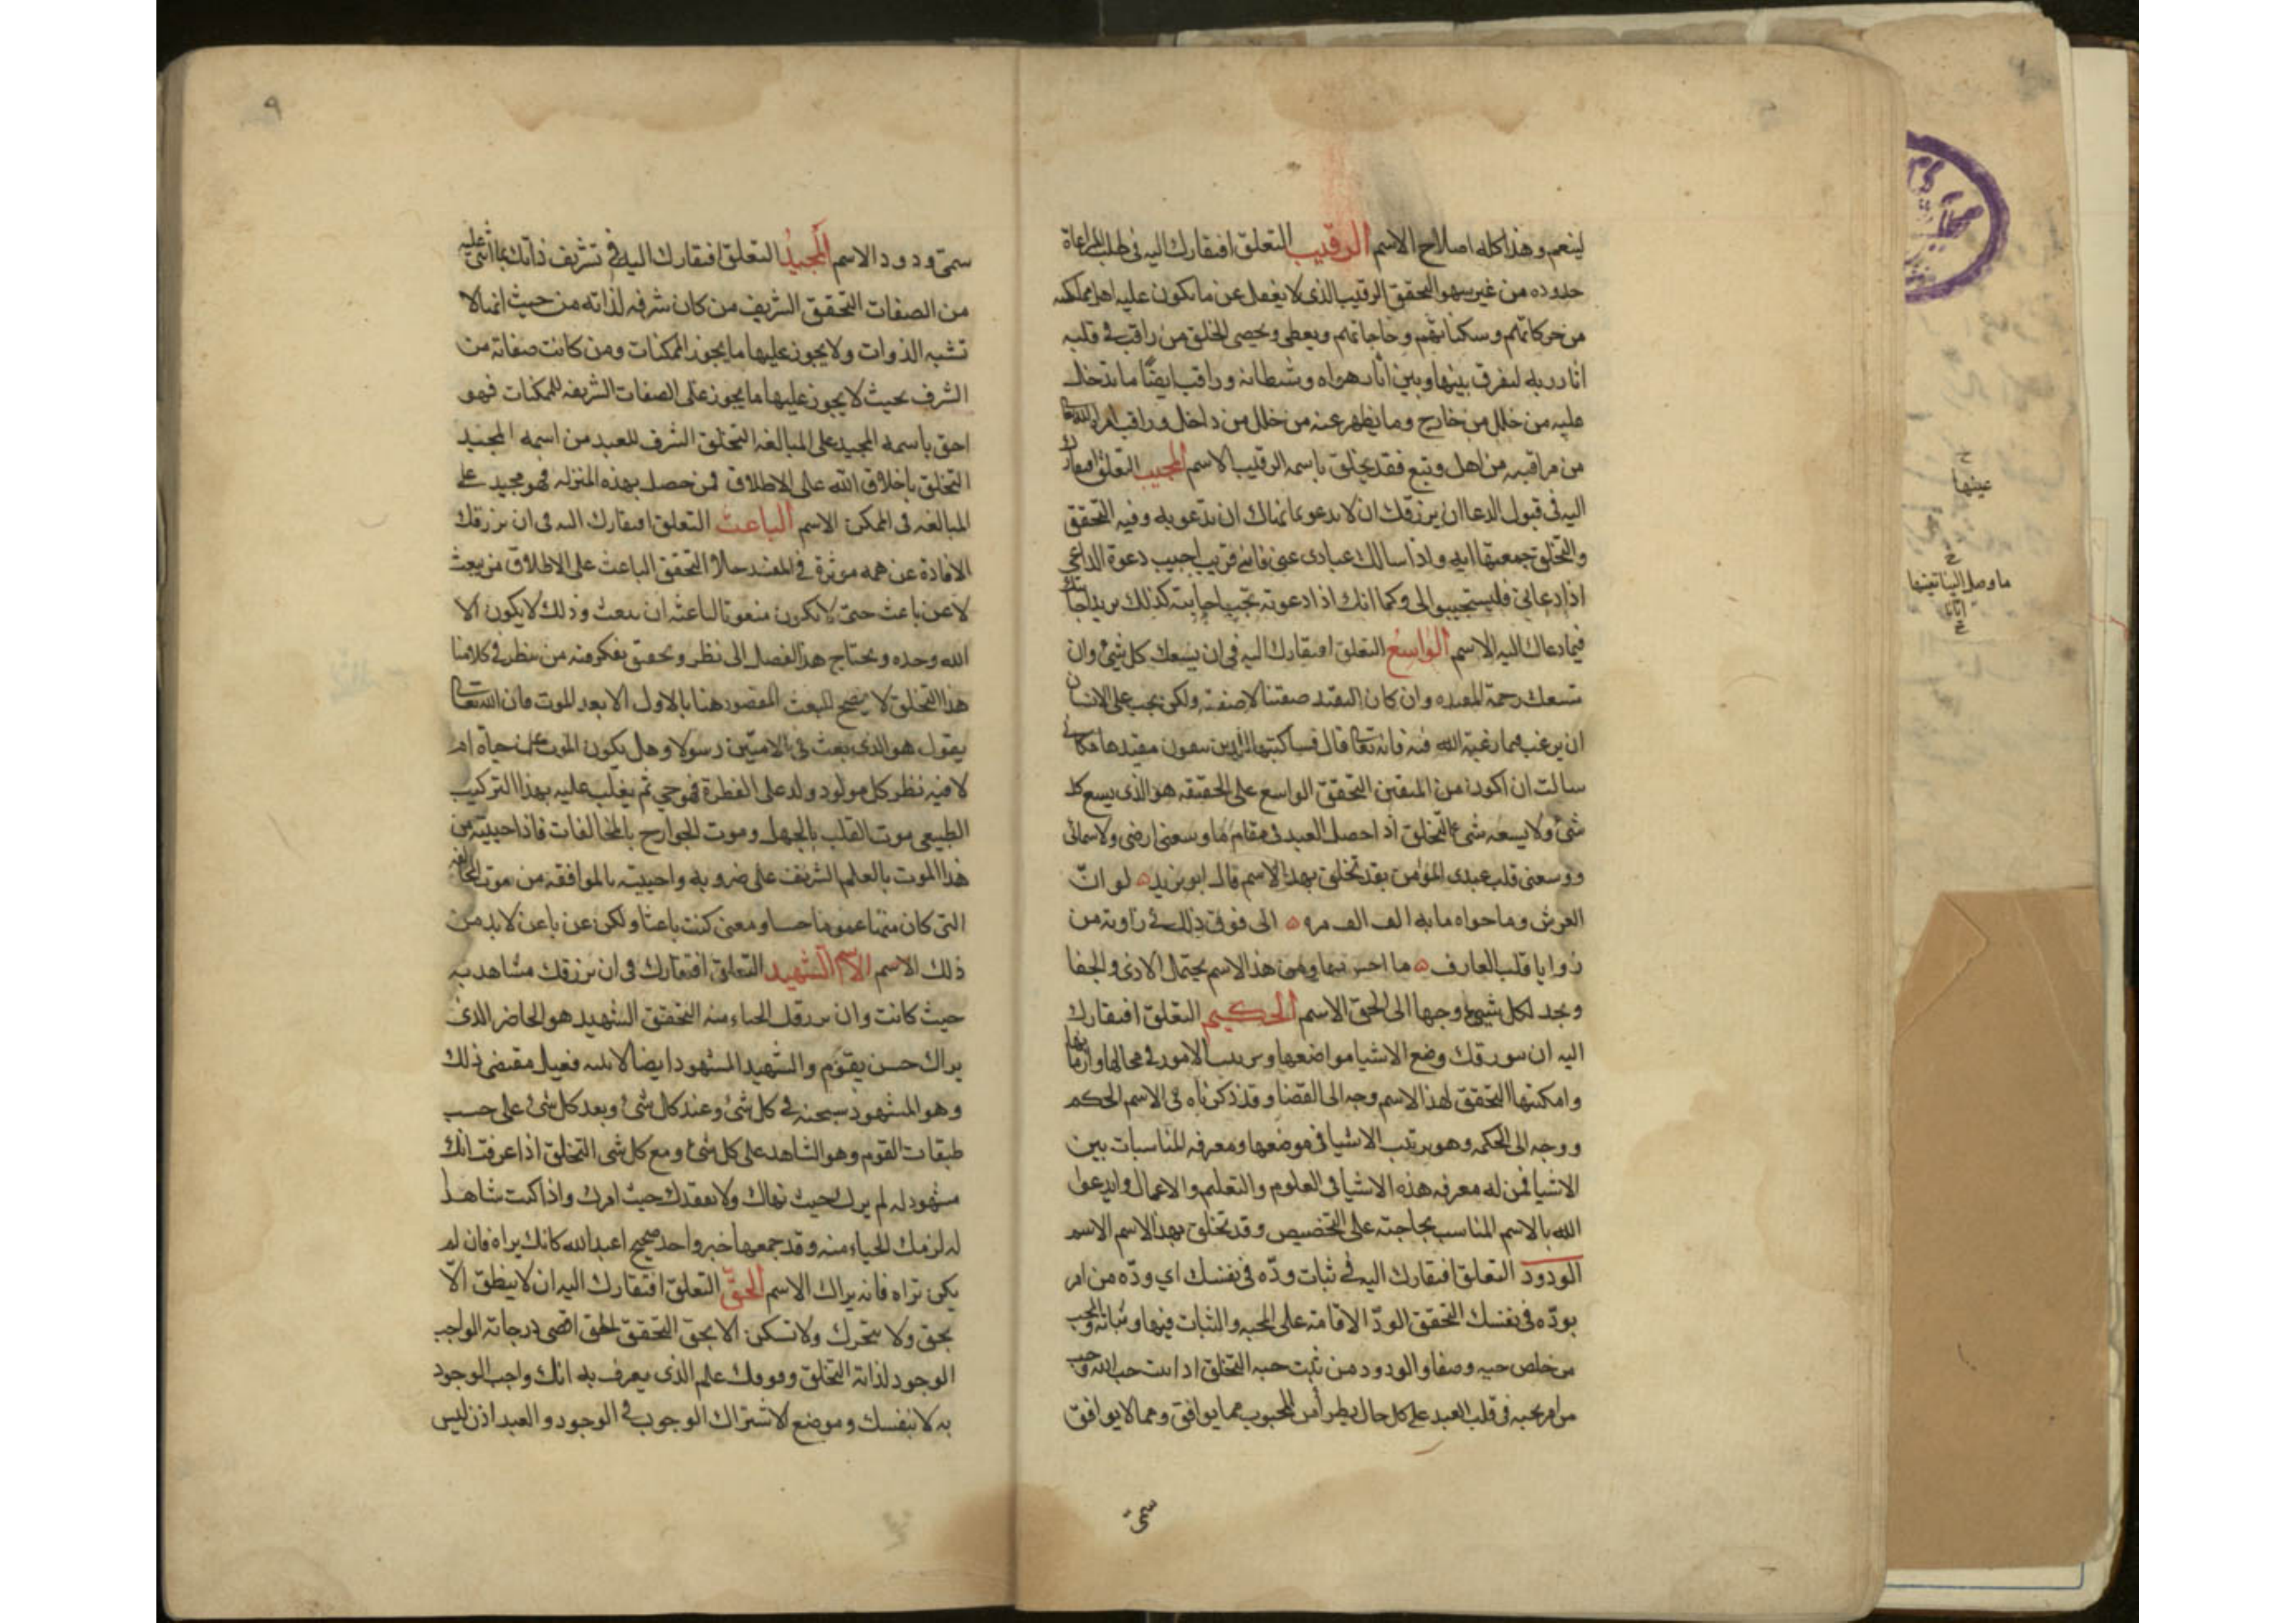 لينعم وهذا كله اصلاح الاسم الرقيب التعلق افتقارك اليه في طلب المراعاة
حدوده من غير سهو التحقق الرقيب الذي لا يغفل عن ما يكون عليه اهل مملكته
من حركاتهم وسكناتهم وحاجاتهم ويعطي ويحصي الخلق من راقب في قلبه
اثار ربه ليفرق بينها وبين اثار هواه وشيطانه وراقب ايضا ما يدخل
عليه من خلل من خارج وما يظهر عنه من خلل من داخل وراقب امر الله تعالى
من مراقبه من اهل وتبع فقد تخلق باسمه الرقيب الاسم المجيب التعلق افتقارك
اليه في قبول الدعا ان يرزقك ان لا تدعو بما نهاك ان تدعو به وفيه التحقق
والتخلق جمعتها ايه واذا سالك عبادي عني فاني قريب اجيب دعوة الداعي
اذا دعاني فليستجيبوا لي وكما انك اذا دعوته تحب اجابته كذلك يريد اجابتك
فيما دعاك اليه الاسم الواسع التعلق افتقارك اليه في ان يسعك كل شيء وان
تسعك رحمة المقيده وان كان التقيد صفتنا لا صفته ولكن يجب على الانسان
ان يرغب فيما رغبه الله فيه فانه تعالى قال فساكتبها للذين يتقون مقيدها فكاني
سالت ان اكون من المتقين التحقق الواسع على الحقيقه هو الذي يسع كل
شيء ولا يسعه شيء التخلق اذا حصل العبد في مقام ما وسعني ارضي ولا سمائي
ووسعني قلب عبدي المؤمن فقد تخلق بهذا الاسم قال ابو يزيد لو ان
العرش وما حواه مايه الف الف مره الى فوق ذلك في زاويه من
زوايا قلب العارف ما احس بها ومن هذا الاسم يحتمل الاذى والجفا
ويجد لكل شيء وجها الى الحق الاسم الحكيم التعلق افتقارك
اليه ان يرزقك وضع الاشيا مواضعها وترتيب الامور في محالها وازمانها
وامكنتها التحقق لهذا الاسم وجه الى القضا وقد ذكرناه في الاسم الحكم
ووجه الى الحكمه وهو ترتيب الاشيا في موضعها ومعرفه المناسبات بين
الاشيا فمن له معرفه هذه الاشيا في العلوم والتعليم والاعمال وليدعوا
الله بالاسم المناسب بحاجته على التخصيص وقد تخلق بهذا الاسم الاسم
الودود التعلق افتقارك اليه في ثبات ودّه في نفسك اي ودّه من امر
بودّه في نفسك التحقق الودّ الاقامة على المحبه والثبات فيها وثباته والمحب
من خلص حبه وصفا والودود من ثبت حبه التخلق اذا ثبت حب الله وحب
من امر بحبه في قلب العبد على كل حال يطرأ من المحبوب مما يوافق ومما لا يوافق
سمّي
٩
سمّي ودودا الاسم المجيد التعلق افتقارك اليه في تشريف ذاتك بما اثنى عليه
من الصفات التحقق الشريف من كان شرفه لذاته من حيث انها لا
تشبه الذوات ولا يجوز عليها ما يجوز للمكنات ومن كانت صفاته من
الشرف بحيث لا يجوز عليها ما يجوز على الصفات الشريفه للممكنات فهو
احق باسمه المجيد على المبالغه التخلق الشرف للعبد من اسمه المجيد
التخلق باخلاق الله على الاطلاق فمن حصل بهذه المنزله فهو مجيد على
المبالغه في الممكن الاسم الباعث التعلق افتقارك اليه في ان يرزقك
الافادة عن همه موثرة في المفيد حالا التحقق الباعث على الاطلاق من يبعث
لا عن باعث حتى لا يكون منعوتا لباعثه ان يبعث وذلك لا يكون الا
الله وحده ويحتاج هذا الفصل الى نظر وتحقق بفكر منه من ينظر في كلامنا
هذا التخلق لا يصح البعث المقصود هنا بالاول الا بعد الموت فان الله تعالى
يقول هو الذي بعث في الاميّين رسولا وهل يكون الموت عن حياة ام
لا فيه نظر كل مولود ولد على الفطرة فهو حي ثم يغلب عليه بهذا التركيب
الطبيعي موت القلب بالجهل وموت الجوارح بالمخالفات فاذا احييته من
هذا الموت بالعلم الشريف على ضروبه واحييته بالموافقه من موت المخالفه
التي كان ميتا عموما حسا ومعنى كنت باعثا ولكن عن باعث لا بد من
ذلك الاسم الاسم الشهيد التعلق افتقارك في ان يرزقك مشاهدته
حيث كانت وان يرزقك الحياء منه التحقق الشهيد هو الحاضر الذي
يراك حين تقوم والشهيد المشهود ايضا لانه فعيل مقتضى ذلك
وهو المشهود سبحنه في كل شيء وعند كل شيء وبعد كل شيء على حسب
طبقات القوم وهو الشاهد على كل شيء ومع كل شي التخلق اذا عرفت انك
مشهود له لم يرك حيث نهاك ولا يفقدك حيث امرك واذا كنت شاهدا
له لزمك الحياء منه وقد جمعها خبر واحد صحيح اعبد الله كانك تراه فان لم
يكن تراه فانه يراك الاسم الحق التعلق افتقارك اليه ان لا ينطق الّا
بحق ولا تتحرك ولا تسكن الا بحق التحقق الحق اقصى درجاته الواجب
الوجود لذاته التخلق وقوفك علم الذي يعرف به انك واجب الوجود
به لا بنفسك وموضع الاشتراك الوجوب في الوجود والعبد اذن ليس
عينها
ما وصل الينا تعينها